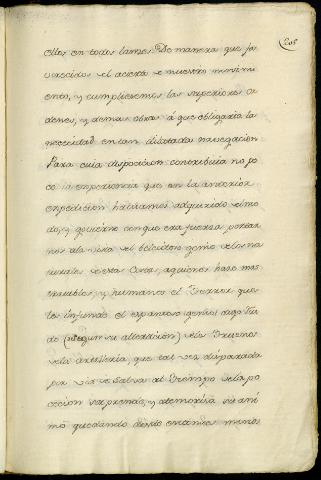 ellos en todos lances. De manera que fa
vorecidos el acierto nuestro movimi
ento, y cumpliesemos las superiores or
denes, y demas obras à que obligaría la
necesidad en tan dilatada navegacion
Para cuia disposicion contribuia no po
co la experiencia que en la anterior
expedicion haviamos adquirido, el mo
do, y govierno con que era fuerza portar
nos ala vista el belicoso genio delos na
turales de esta Costa, aquienes haze mas
tratables, y humanos el Terror que
les infunde el espantoso
do (segun su altercacion) delos Truenos
dela Artilleria, que tal vez disparada
por via de Salva al Tiempo dela po
cecion sorprende, y atemoriza su ani
mo quedando desde entonces menos